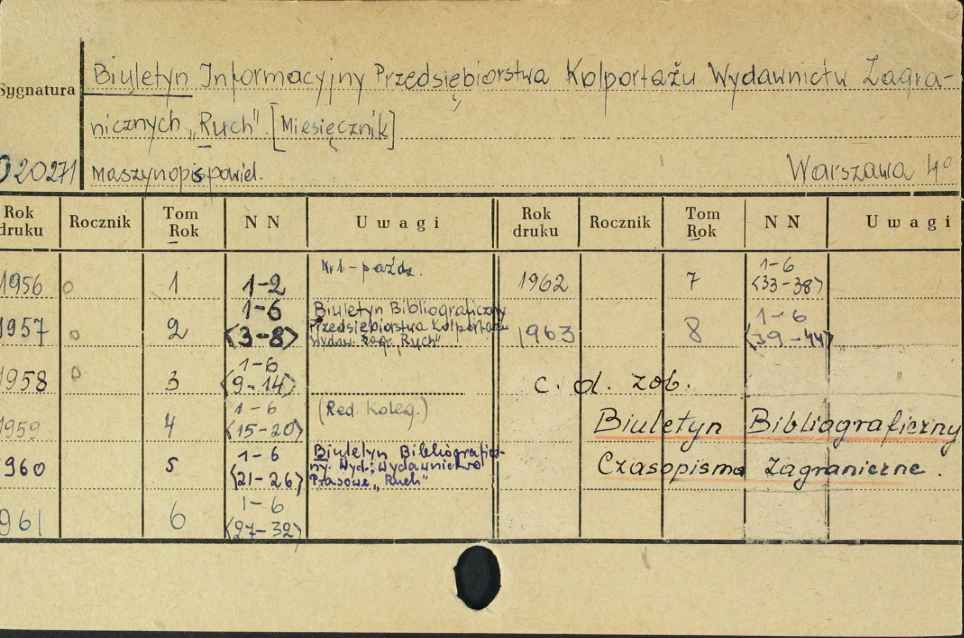 Biuletyn Informacyjny Przedsiębiorstwa Kolportażu Wydawnictw Zagra-
Sygnatura
nicznych „Ruch". [Miesięcznik]
020271 maszynopis powiel. Warszawa 4°
Rok druku Rocznik Tom Rok N N Uwagi Rok druku Rocznik Tom Rok N N Uwagi
1956 1 1-2 Nr 1 - paźdz. 1962 7 1-6 <33-38>
1957 2 1-6 <3-8> Biuletyn Bibliograficzny Przedsiębiorstwa Kolportażu Wydaw. Zagr. „Ruch" 1963 8 1-6 <39-44>
1958 3 1-6 <9-14> c. d. zob.
1959 4 1-6 <15-20> (Red. Koleg.) Biuletyn Bibliograficzny
960 5 1-6 <21-26> Biuletyn Bibliograficz-ny. Wyd.: Wydawnictwo Prasowe „Ruch" Czasopisma Zagraniczne.
961 6 1-6 <27-32>